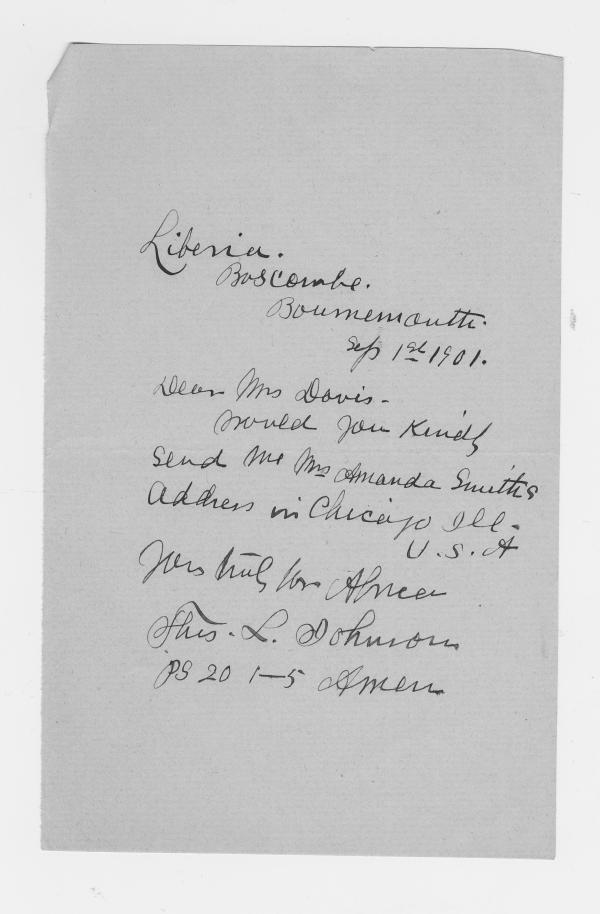 Liberia.
Boscombe.
Bournemouth.
Sep 1st 1901.
Dear Mrs Davis-
would you Kindly
send me Mrs Amanda Smiths
Address in Chicago Ill-
U.S.A
Yors truly for Africa
Thos. L. Johnson
PS 20 1-5 Amen